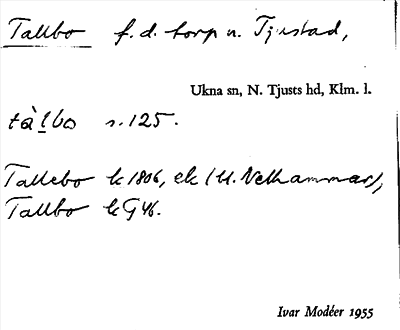 Tallbo f. d. torp u. Tjustad,
Ukna sn, N. Tjusts hd, Klm. l.
tàlbo s. 125.
Tallebo k 1806, ek (U. Velhammar),
Tallbo k G 46.
Ivar Modéer 1955